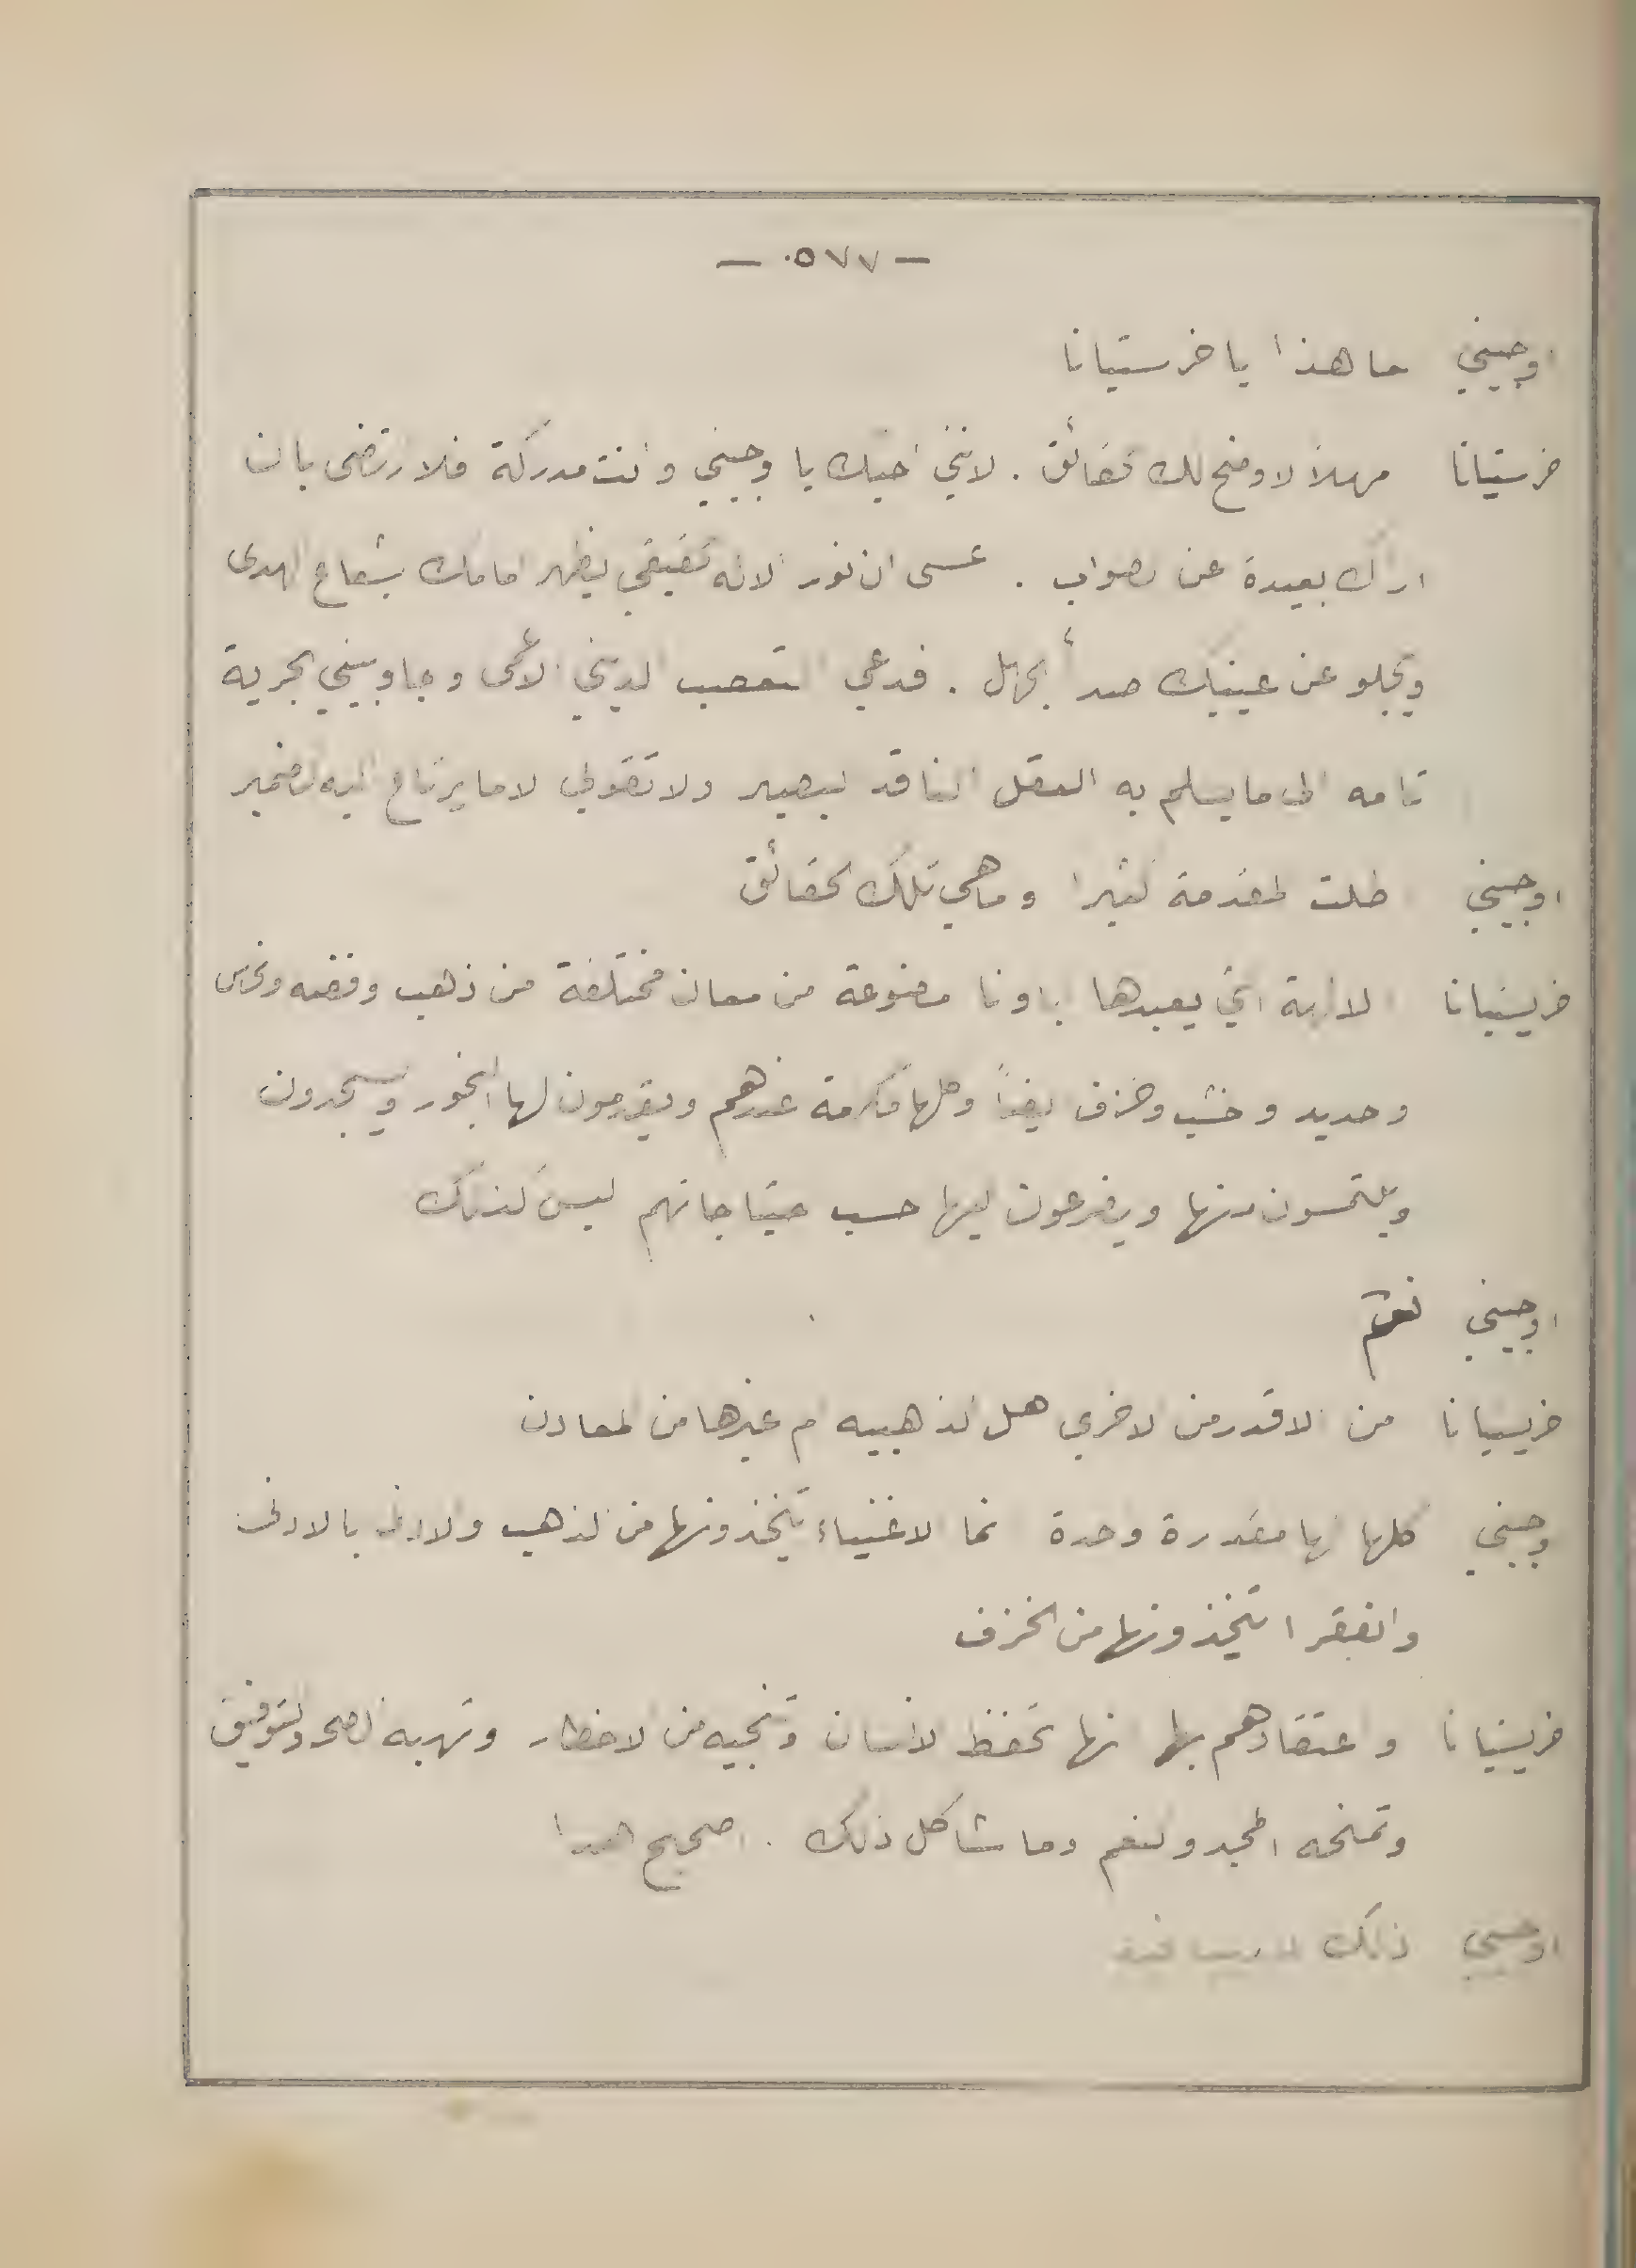 — ٥٧٧. —
اوجيني ما هذا يا خرستيانا
خرستيانا مهلاً لاوضح لك الحقائق . لانني احبك يا اوجيني وانت مدركة فلا ارتضى بان
اراك بعيدة عن الصواب . عسى ان نور الاله الحقيقي يظهر امامك بشعاع الهدى
ويجلو عن عينيك صدأ الجهل . فدعي التعصب الديني الاعمى وجاوبيني بحرية
تامه الى ما يسلم به العقل الناقد البصير ولا تقولي الا ما يرتاح اليه الضمير
اوجيني اطلت المقدمة كثيرا وما هي تلك الحقائق
خريستيانا الالهة التي يعبدها اباونا مصنوعة من معادن مختلفة من ذهب وفضه ونحاس
وحديد وخشب وخزف ايضاً وكلها مكرمة عندهم ويقدمون لها البخور ويسجدون
ويلتمسون منها ويضرعون اليها حسب احتياجاتهم اليس كذلك
اوجيني نعم
خريستيانا من الاقدر من الاخرى هل الذهبيه ام غيرها من المعادن
اوجيني كلها لها مقدرة واحدة انما الاغنياء يتخذونها من الذهب والادنى بالادنى
والفقرا يتخذونها من الخزف
خريستيانا واعتقادهم بها انها تحفظ الانسان وتنجيه من الاخطار وتهبه الصحه والتوفيق
وتمنحه المجد والنعم وما شاكل ذلك . اصحيح هذا
اوجيني ذلك لا ريب فيه